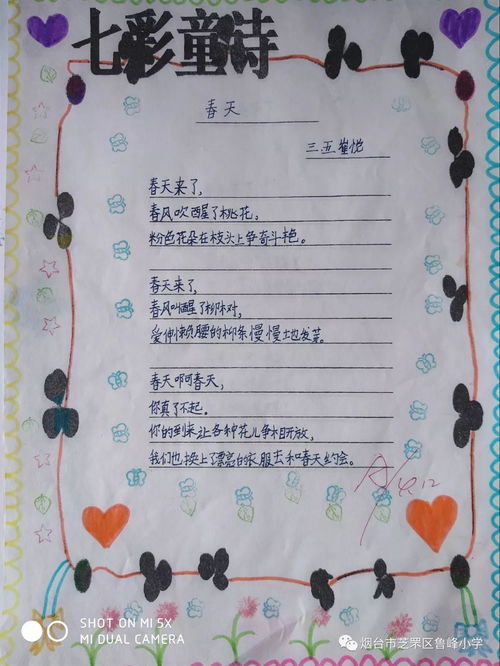 七彩童诗
春天
三五崔悦
春天来了，
春风吹醒了桃花，
粉色花朵在枝头上争奇斗艳。
春天来了，
春风叫醒了柳树，
爱伸懒腰的柳条慢慢地发芽。
春天啊春天，
你真了不起。
你的到来让各种花儿争相开放，
我们也换上了漂亮的衣服去和春天约会。
4.12
SHOT ON MI 5X
MI DUAL CAMERA
烟台市芝罘区鲁峰小学